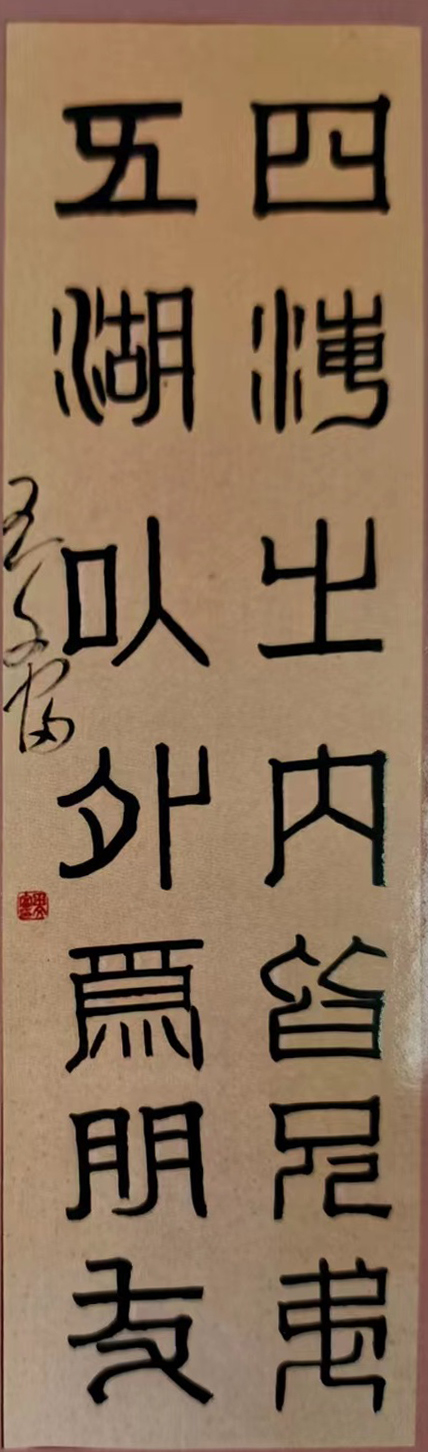 四海之内皆兄弟
五湖以外爲朋友